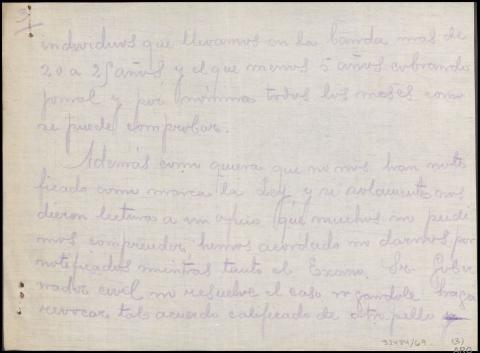 3)
individuos que llevamos en la banda mas de
20 a 25 años, y el que menos 5 años cobrando
jornal y por nómina todos los meses como
se puede comprobar.
Además como quiera que no nos han noti
ficado como marca la Ley y si solamente nos
dieron lectura a un oficio (que muchos no pudi
mos comprender, hemos acordado no darnos por
notificados mientras tanto el Excmo. Sr. Gober
nador civil no resuelve el caso rogandole haga
revocar tal acuerdo calificado de atropello
32484/69 (3)
ARG